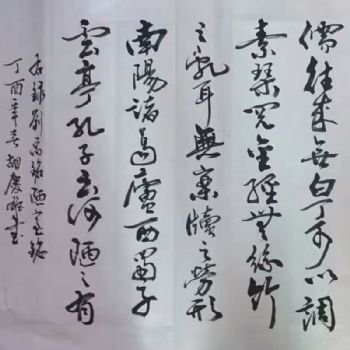 儒往來無白丁可以調
素琴閱金經無絲竹
之亂耳無案牘之勞形
南陽諸葛廬西蜀子
雲亭孔子云何陋之有
右錄劉禹錫陋室銘
丁酉年春胡慶書